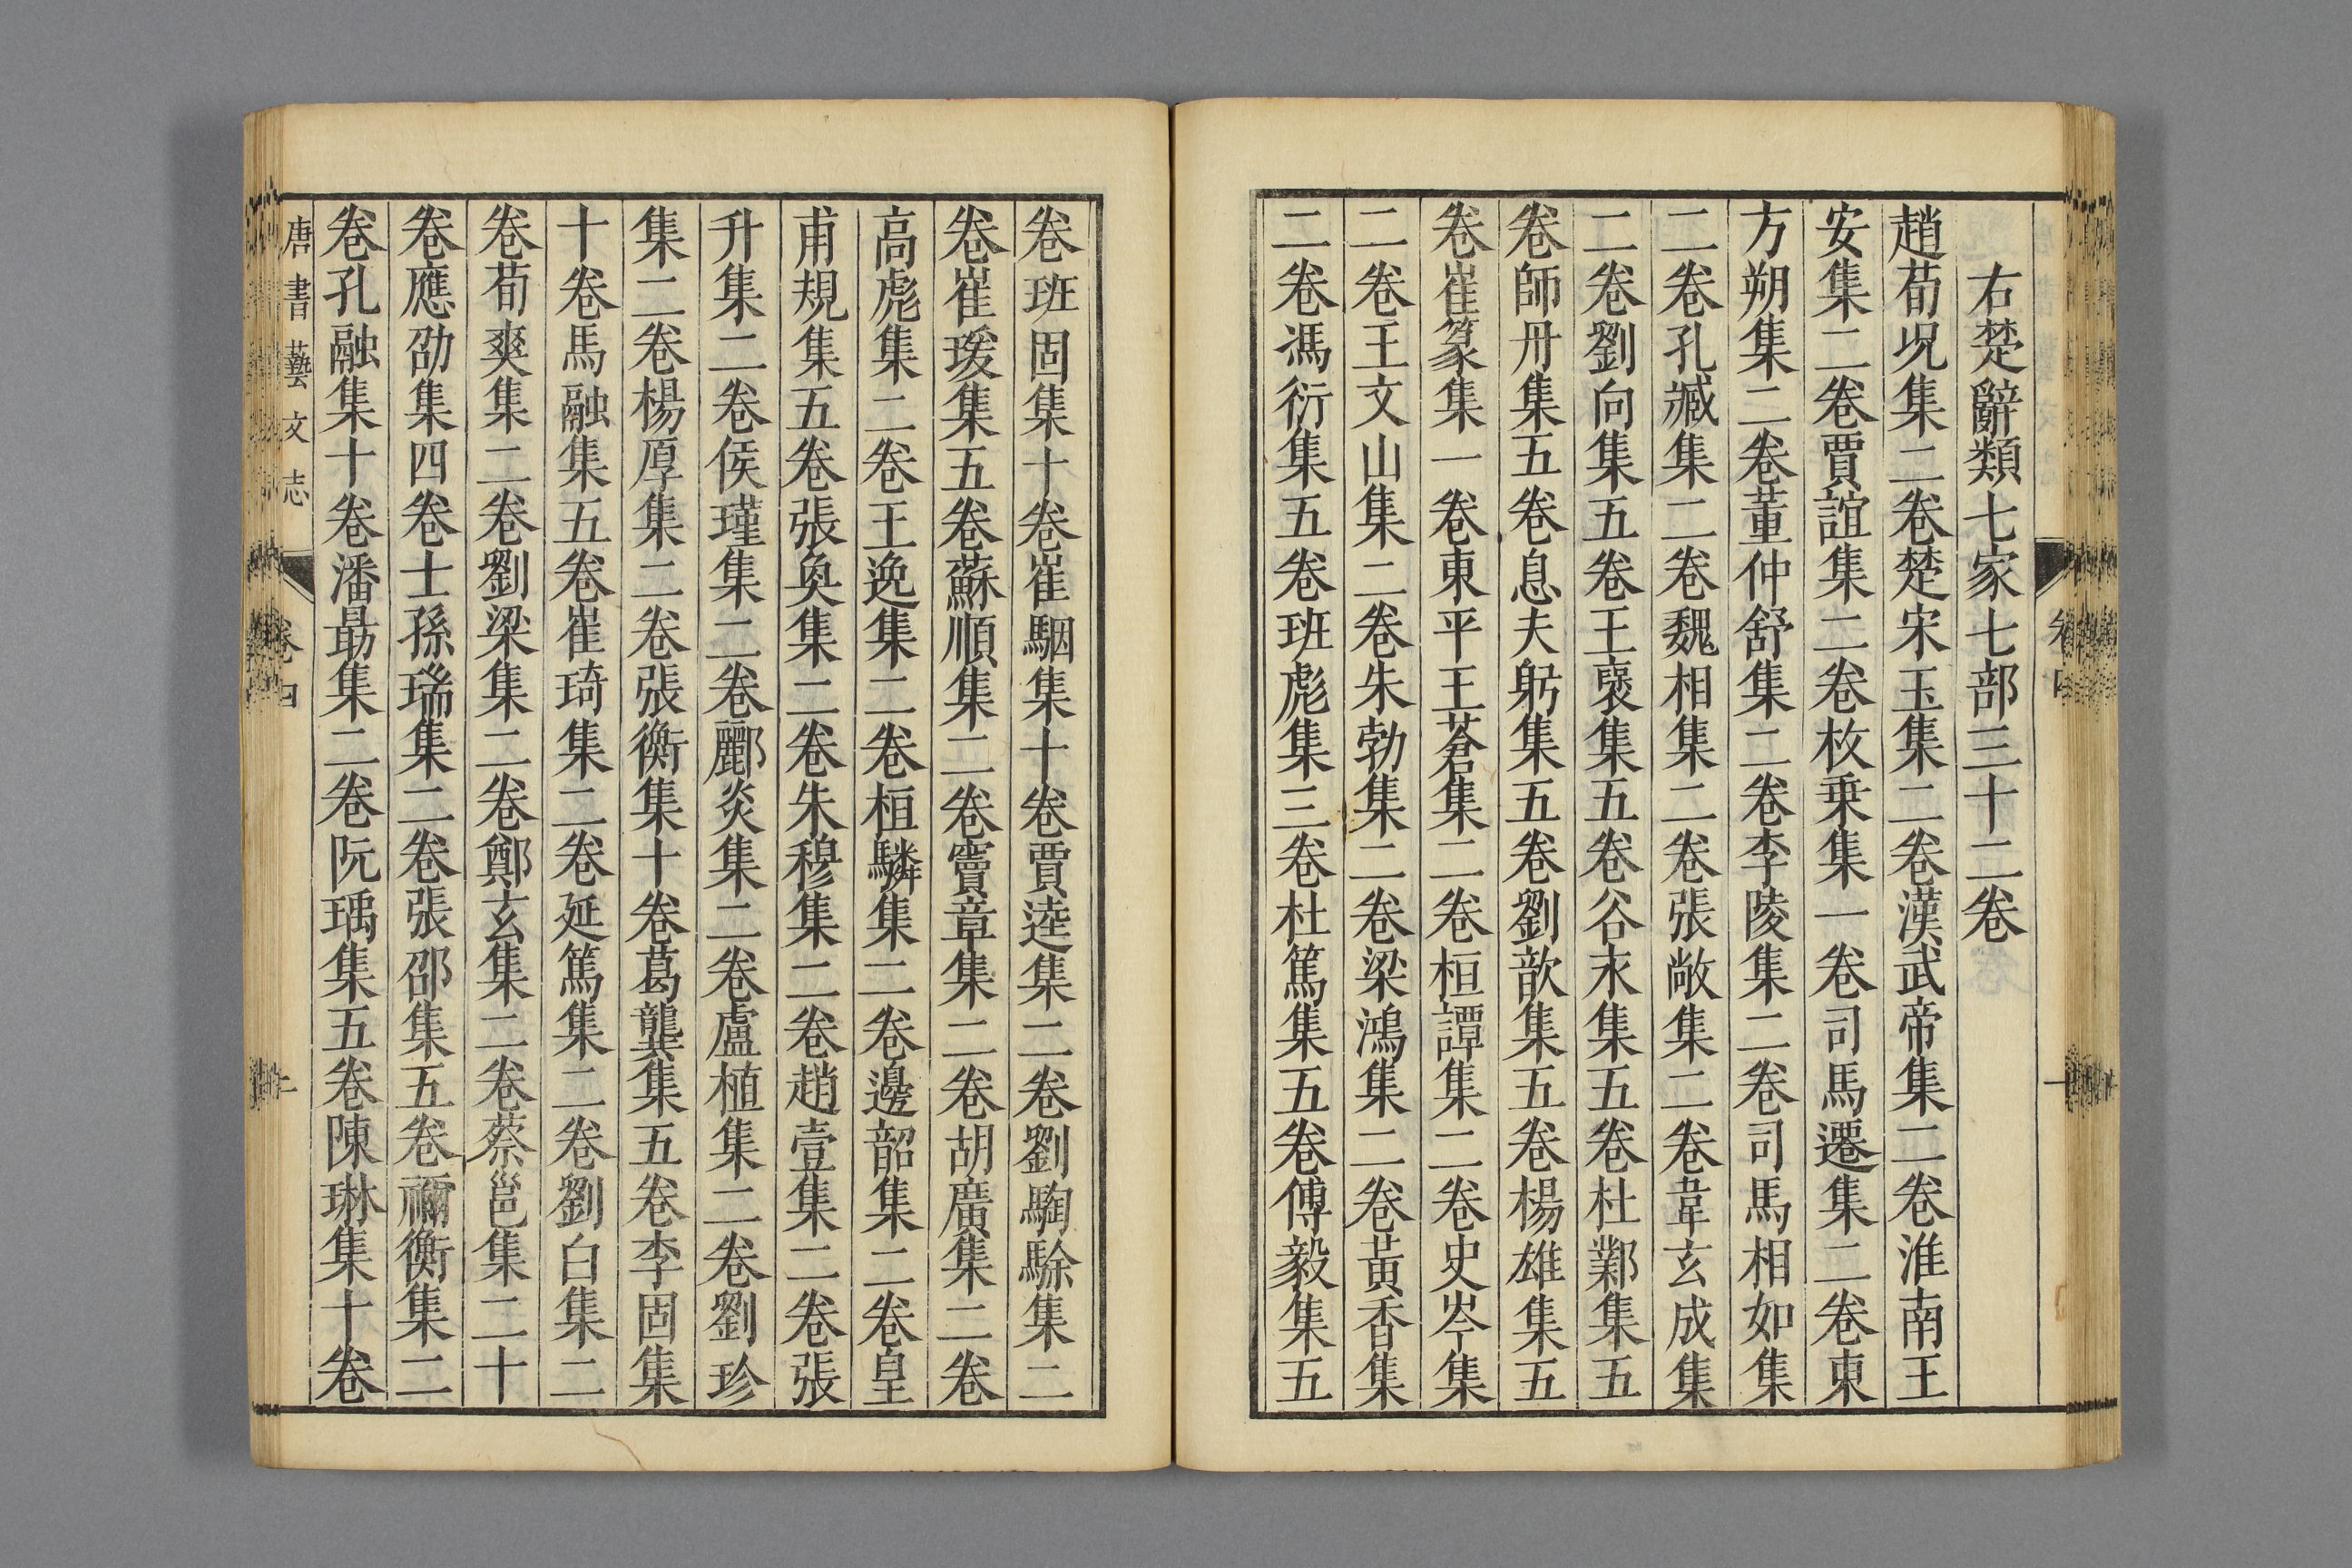 右楚辭類七家七部三十二卷
趙荀况集二卷楚宋玉集二卷漢武帝集二卷淮南王
安集二卷賈誼集二卷枚乗集一卷司馬遷集二卷東
方朔集二卷董仲舒集二卷李陵集二卷司馬相如集
二卷孔臧集二卷魏相集二卷張敞集二卷韋玄成集
二卷劉向集五卷王襃集五卷谷永集五卷杜鄴集五
卷師丹集五卷息夫躬集五卷劉歆集五卷楊雄集五
卷崔篆集一卷東平王蒼集二卷桓譚集二卷史岑集
二卷王文山集二卷朱勃集二卷梁鴻集二卷黃香集
二卷馮衍集五卷班彪集三卷杜篤集五卷傅毅集五
卷班固集十卷崔駰集十卷賈逵集二卷劉騊駼集二
卷崔瑗集五卷蘇順集二卷竇章集二卷胡廣集二卷
高彪集二卷王逸集二卷桓驎集二卷邊韶集二卷皇
甫規集五卷張奐集二卷朱穆集二卷趙壹集二卷張
升集二卷侯瑾集二卷酈炎集二卷盧植集二卷劉珍
集二卷楊厚集二卷張衡集十卷葛龔集五卷李固集
十卷馬融集五卷崔琦集二卷延篤集二卷劉白集二
卷荀爽集二卷劉梁集二卷鄭玄集二卷蔡邕集二十
卷應劭集四卷士孫瑞集二卷張邵集五卷禰衡集二
卷孔融集十卷潘勗集二卷阮瑀集五卷陳琳集十卷
唐書藝文志 卷四